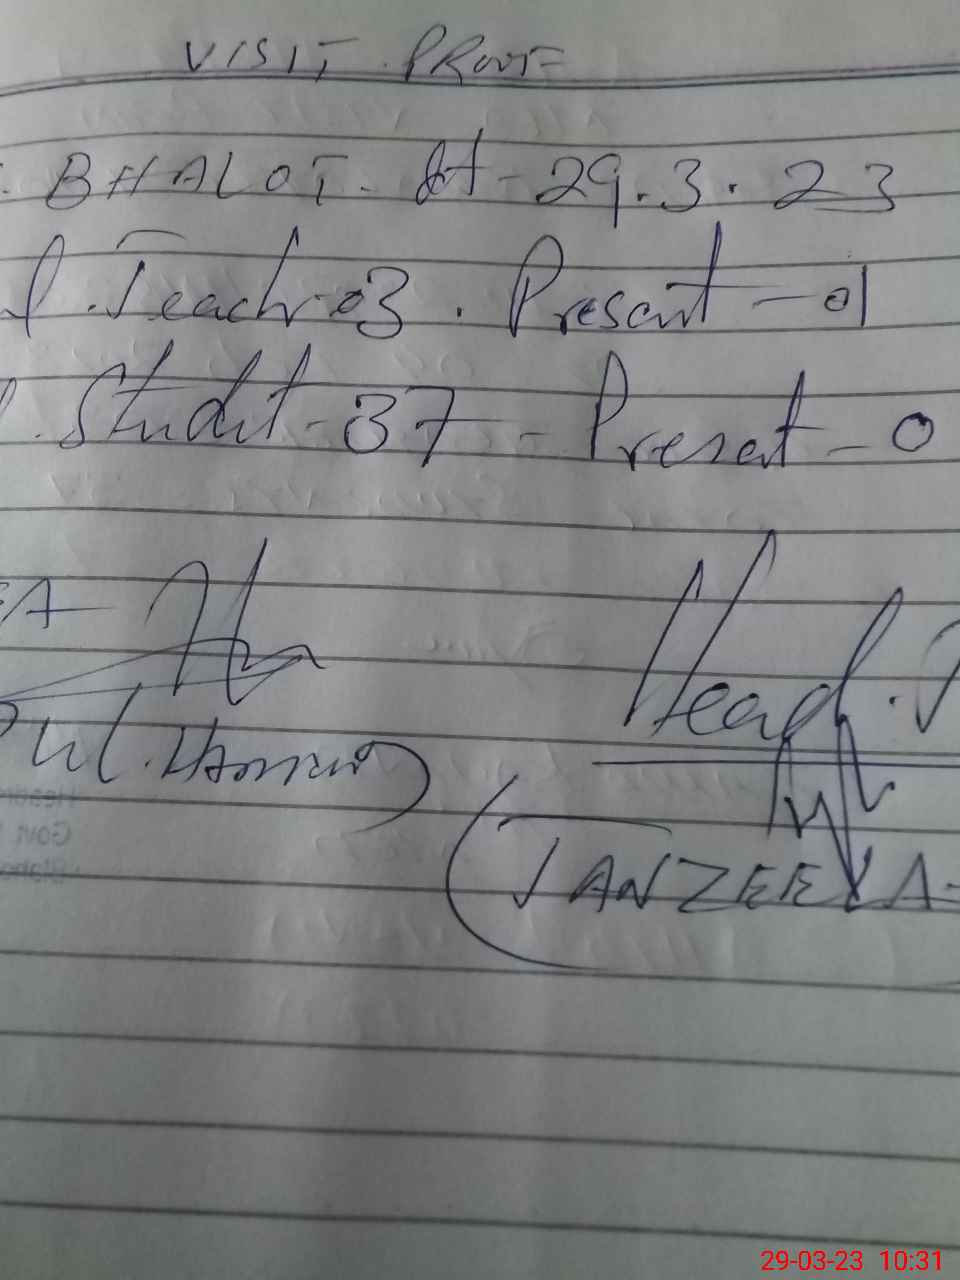 VISIT PROOF
BHALOT. dt - 29.3.23
Teachr 03. Present - 01
Studet - 37 - Presat - 0
Head.
TANZEELA
29-03-23 10:31